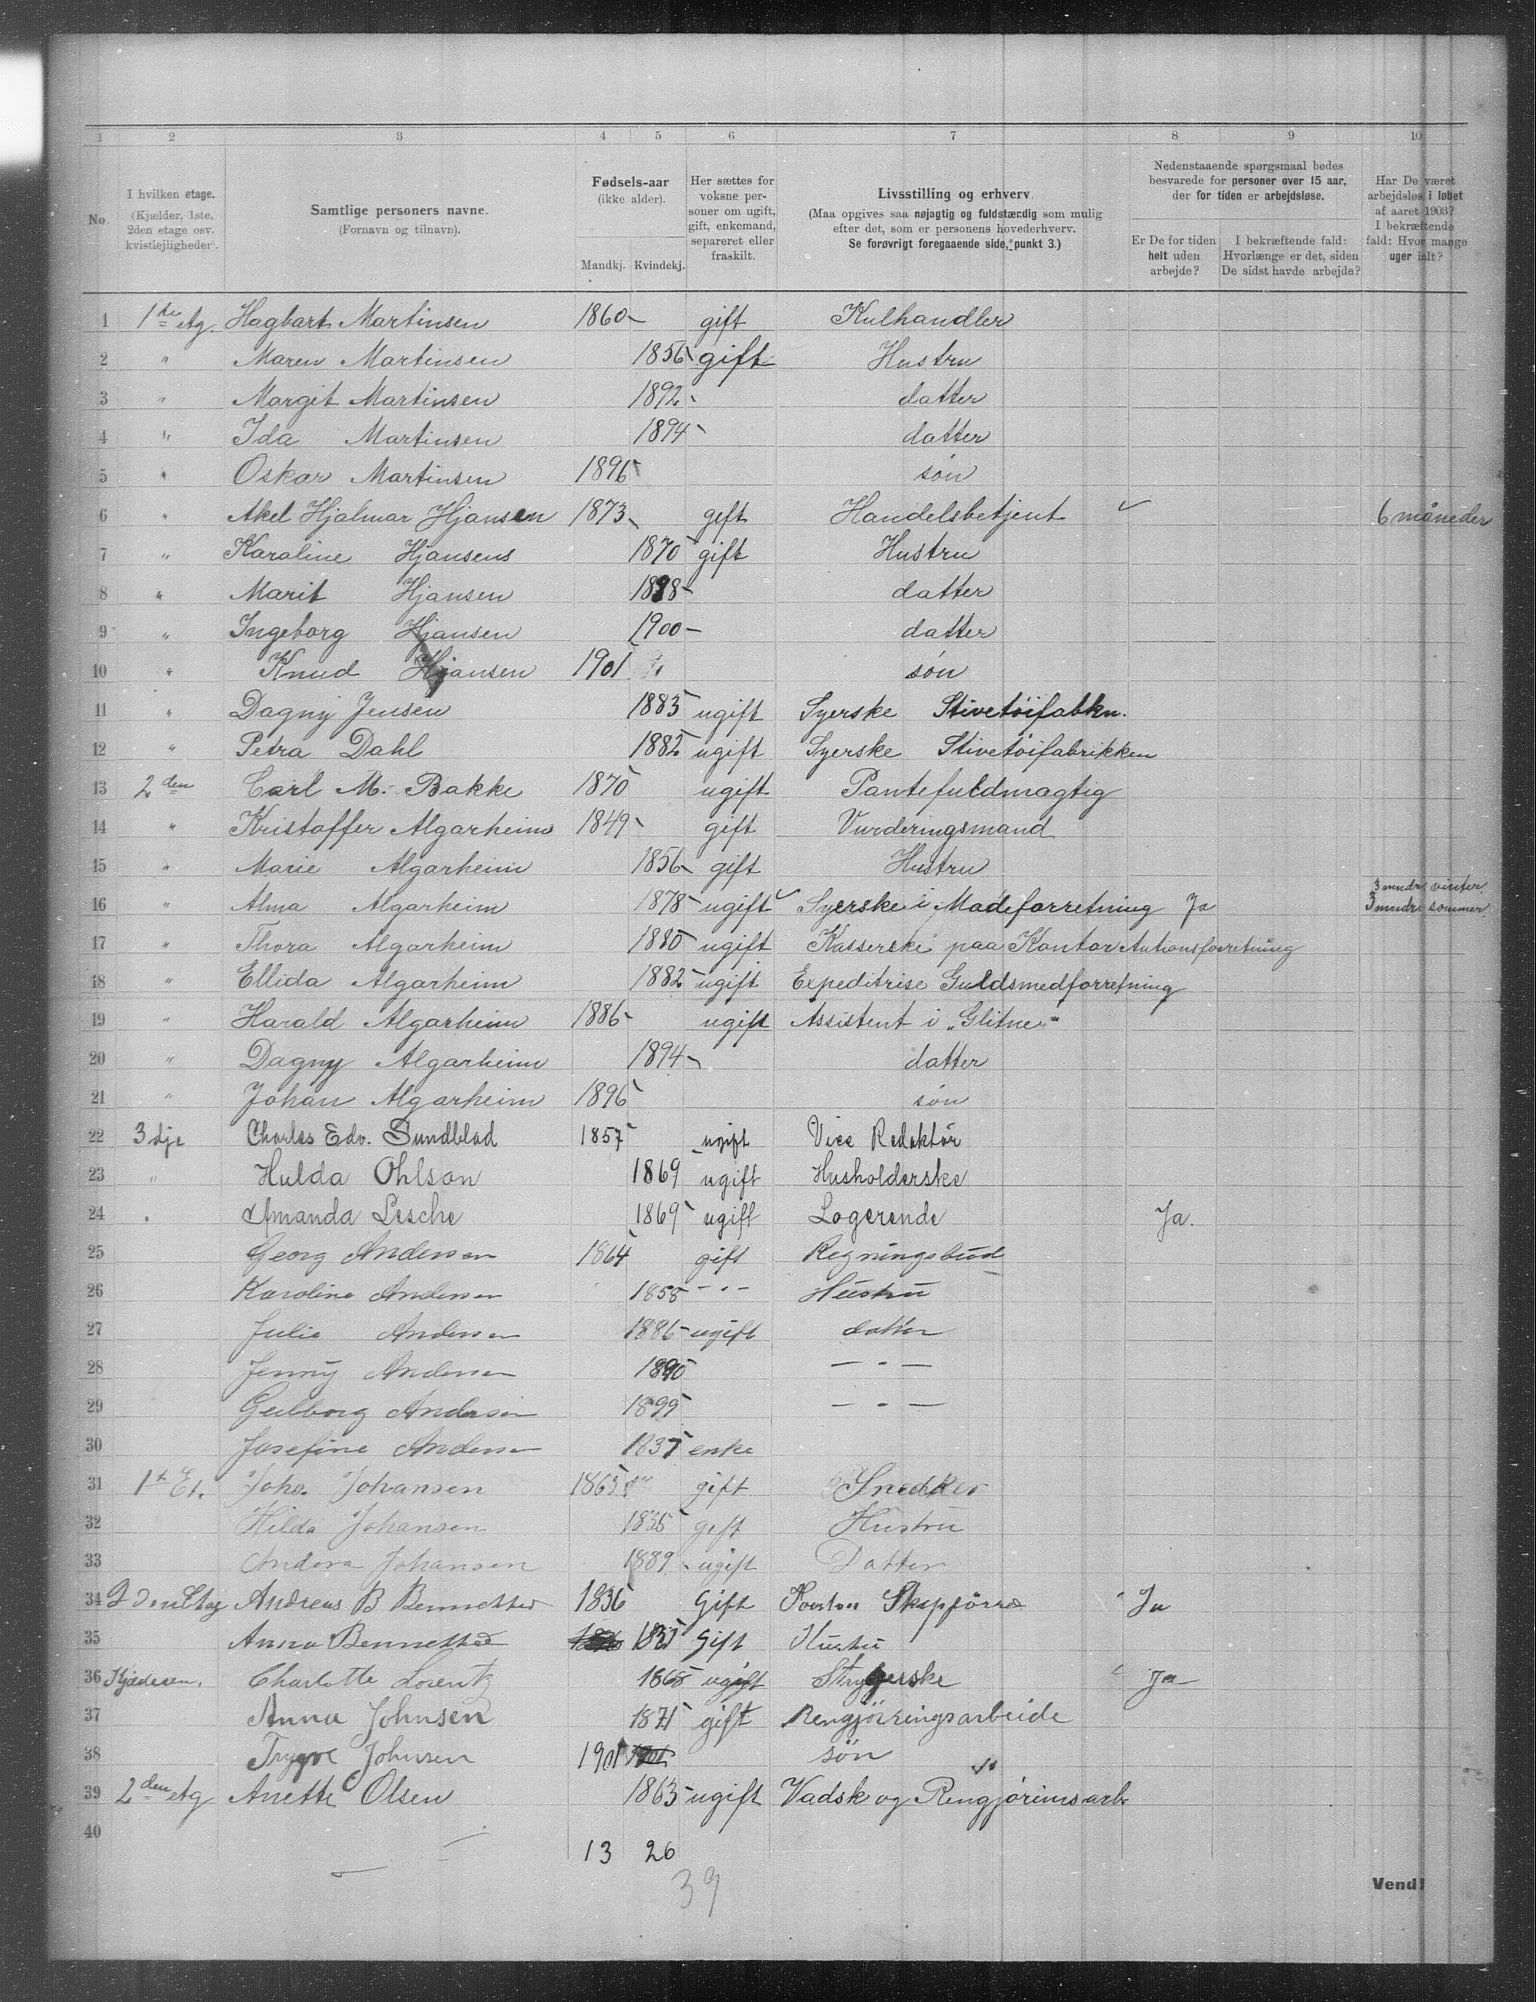 1 2 3 4 5 6 7 8 9 10
No.
I hvilken etage.
(Kjælder, 1ste, 2den etage osv. kvistlejligheder).
Samtlige personers navne.
(Fornavn og tilnavn).
Fødsels-aar
(ikke alder).
Mandkj. Kvindekj.
Her sættes for voksne personer om ugift, gift, enkemand, separeret eller fraskilt.
Livsstilling og erhverv
(Maa opgives saa nøjagtig og fuldstændig som mulig efter det, som er personens hovederhverv.
Se forøvrigt foregaaende side, punkt 3.)
Nedenstaaende spørgsmaal bedes besvarede for personer over 15 aar, der for tiden er arbejdsløse.
Er De for tiden helt uden arbejde?
I bekræftende fald: Hvorlænge er det, siden De sidst havde arbejde?
Har De været arbejdsløs i løbet af aaret 1903? I bekræftende fald: Hvor mange uger ialt?
1 1ste etg. Hagbart Martinsen 1860 gift Kulhandler
2 " Maren Martinsen 1856 gift Hustru
3 " Margit Martinsen 1892 datter
4 " Ida Martinsen 1894 datter
5 " Oskar Martinsen 1896 søn
6 " Akel Hjalmar Hjansen 1873 gift Handelsbetjent 6 måneder
7 " Karoline Hjansens 1870 gift Hustru
8 " Marit Hjansen 1898 datter
9 " Ingeborg Hjansen 1900 datter
10 " Knud Hjansen 1901 søn
11 " Dagny Jensen 1883 ugift Syerske Stivetøifabkn.
12 " Petra Dahl 1882 ugift Syerske Stivetøifabrikken
13 2den Carl M. Bakke 1870 ugift Pantefuldmagtig
14 " Kristoffer Algarheim 1849 gift Vurderingsmand
15 " Marie Algarheim 1856 gift Hustru
16 " Alma Algarheim 1878 ugift Syerske i Modeforretning Ja 3 mndr. vinter 3 mndr. sommer
17 " Thora Algarheim 1880 ugift Kasserske paa Kontor Autionsforretning
18 " Ellida Algarheim 1882 ugift Expeditrise Guldsmedforretning
19 " Harald Algarheim 1886 ugift Assistent i „Glitne"
20 " Dagny Algarheim 1894 datter
21 " Johan Algarheim 1896 søn
22 3dje Charles Edv. Sundblad 1857 ugift Vice Redaktør
23 " Hulda Ohlson 1869 ugift Husholderske
24 " Amanda Lesche 1869 ugift Logerende Ja.
25 Georg Andersen 1864 gift Regningsbud
26 Karoline Andersen 1858 — " — Hustru
27 Julie Andersen 1886 ugift datter
28 Jenny Andersen 1890 — " —
29 Andersen 1899 — " —
30 Josefine Andersen 1837 enke
31 1st Et. Johs. Johansen 1865 gift Snedker
32 Hilda Johansen gift Hustru
33 Andora Johansen 1889 ugift Datter
34 2den Etag Andreas B Bennetter 1836 Gift Skipsfører Ja
35 Anna Bennetter Gift Hustru
36 Kjælderen. Charlotte Lorentz 1868 ugift Strygerske Ja
37 Anna Johnsen 1871 gift Rengjørringsarbeide
38 Trygve Johnsen 1901 søn
39 2den etg Anette Olsen 1863 ugift Vadsk og Rengjørinsarb.
40
13 26
39
Vend!